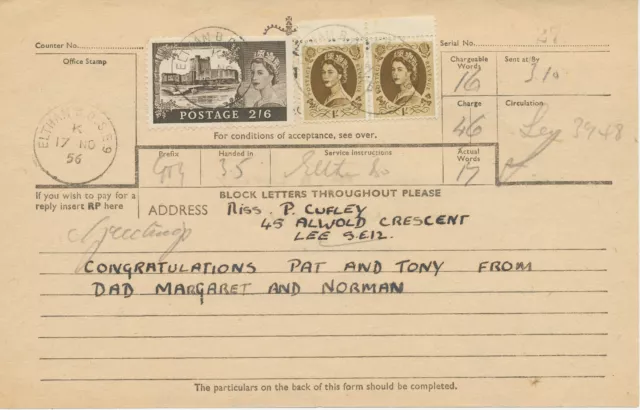 Counter No.
Serial No.
Office Stamp
ELTHAM B.O. S.E.9
K
17 NO
56
POSTAGE 2/6
1/-
1/-
For conditions of acceptance, see over.
Chargeable Words
16
Sent at/By
310
Charge
4/6
Circulation
Actual Words
17
Prefix
Handed in
3.5
Service Instructions
If you wish to pay for a
reply insert RP here
BLOCK LETTERS THROUGHOUT PLEASE
ADDRESS
MISS. P. CUFLEY
45 ALWOLD CRESCENT
LEE S.E.12.
Greetings
CONGRATULATIONS PAT AND TONY FROM
DAD MARGARET AND NORMAN
The particulars on the back of this form should be completed.